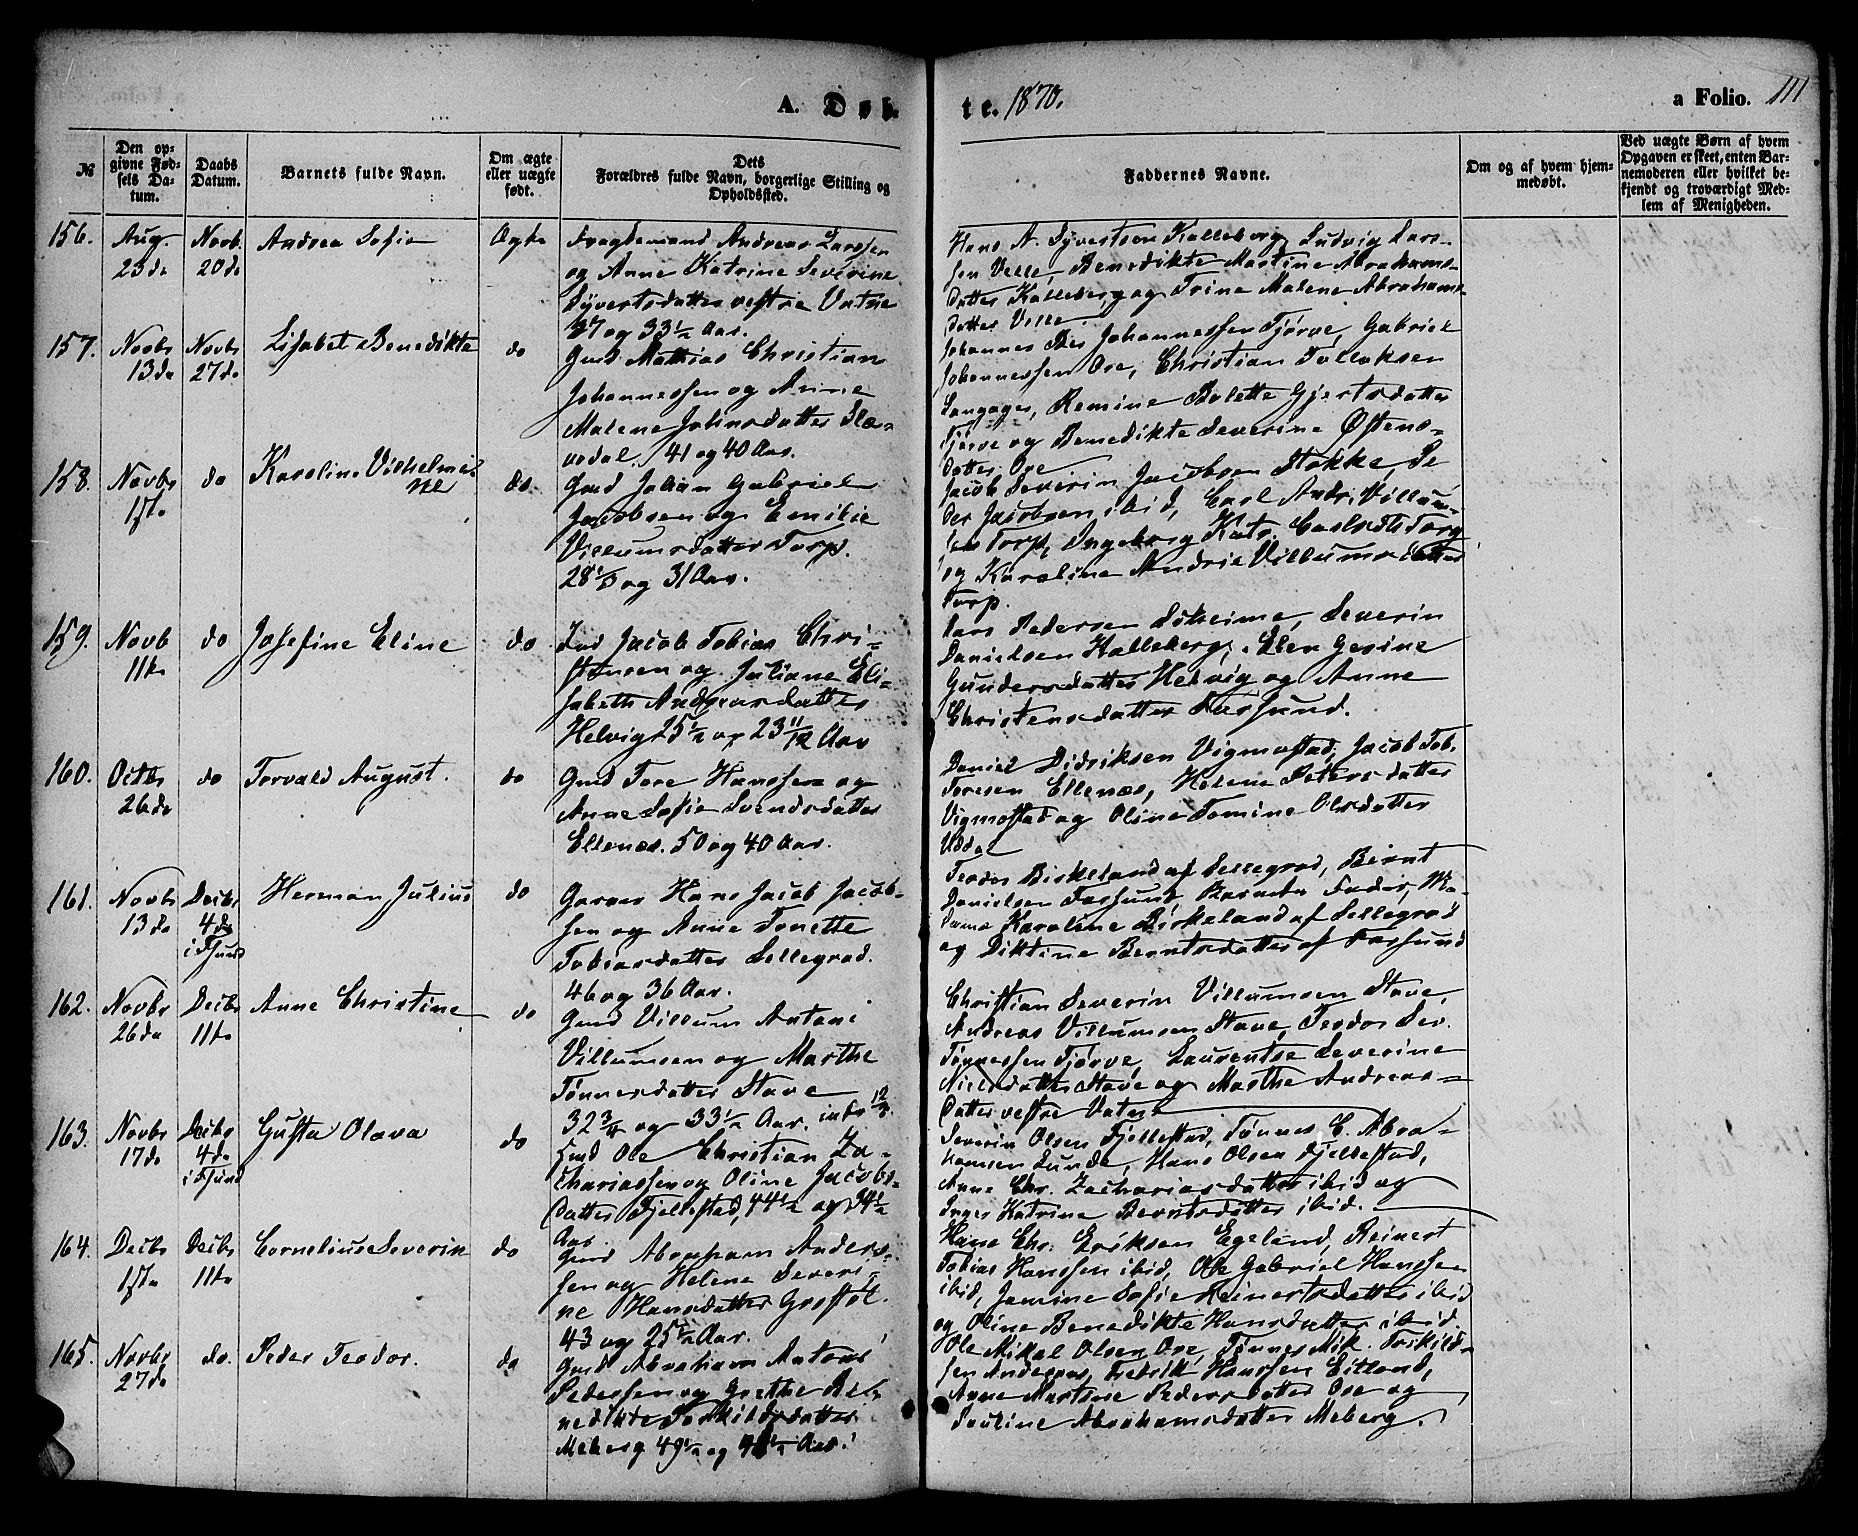 A. Døb-
te. 1870.
a Folio. 111
№
Den op-
givne Fød-
sels Da-
tum.
Daabs
Datum.
Barnets fulde Navn.
Om ægte
eller uægte
født.
Dets
Forældres fulde Navn, borgerlige Stilling og
Opholdssted.
Faddernes Navne.
Om og af hvem hjem-
medøbt.
Ved uægte Børn af hvem
Opgaven er skeet, enten Bar-
nemoderen eller hvilket be-
kjendt og troværdigt Med-
lem af Menigheden.
156.
Aug.
23de
Novb.
20de
Andrea Sofie
Ægte
Andreas Larssen
og Anne Katrine Severine
Syvertsdatter vestre Vatne
37 og 33½ Aar.
Hans A. Syvertsen Kalleberg, Ludvig Lars-
sen Velle, Benedikte Martine Abrahams-
datter Kalleberg og Trine Malene Abrahams-
datter Velle
157.
Novbr
13de
Novbr
27de
Lisabet Benedikte
do
Gmd Mathias Christian
Johannessen og Anne
Malene Johnsdatter Slæ-
vdal. 41 og 40 Aar.
Johannes Johannessen Tjørve, Gabriel
Johannessen Ore, Christian Tollaksen
Langager, Remine Bolette Gjertsdatter
Tjørve og Benedikte Severine Østens-
datter Ore
158.
Novbr
1ste
do
Karoline Vilhelmi-
ne
do.
Gmd Johan Gabriel
Jacobsen og Emilie
Villumsdatter Torp.
28⅓ og 31 Aar.
Jacob Severin Jacobsen Stokke, Pe-
der Jacobsen ibid, Carl Andr. Villum-
sen Torp, Ingeborg Katr. Carlsdtr Torp
og Karoline Andrie Villumsdatter
Torp.
159.
Novb
11te
do
Josefine Eline
do
Ind Jacob Tobias Chri-
stensen og Juliane Eli-
sabeth Andreasdatter
Helvig 25½ og 23 11/12 Aar
Lars Pedersen Severin
Danielsen Kalleberg, Elen Gesine
Gundersdatter Helvig og Anne
Christensdatter Farsund.
160.
Octbr
26de
do
Torvald August.
do
Gmd Tore Hanssen og
Anne Sofie Svendsdatter
Ellenæs. 50 og 40 Aar.
Daniel Didriksen Vigmostad, Jacob Tob.
Toresen Ellenæs, Helene Petersdatter
Vigmostad og Oline Tomine Olsdatter
Uddal
161.
Novbr
13de
Decbr
4de
i Fsund
Herman Julius
do
Garver Hans Jacob Jacob-
sen og Anne Tonette
Tobiasdatter Sellegrod.
46 og 36 Aar.
Teodor Birkeland af Sellegrod, Bernt
Danielsen Farsund, Barnets Fader, Ma-
dame Karoline Birkeland af Sellegrod
og Diktine Berntsdatter af Farsund
162.
Novbr
26de
Decbr
11te
Anne Christine
do
Gmd Villum Antoni
Villumsen og Marthe
Tønnesdatter Stave
32¾ og 33½ Aar. 12/3.
Christian Severin Villumsen Stave,
Andreas Villumsen Stave, Teodor Sev.
Tønnessen Tjørve, Laurentse Severine
Nielsdatter Stave og Marthe Andreas-
datter vestre Vatne
163.
Novbr
17de
Decbr
4de
i Fsund
Gusta Olava
do
Hmd Ole Christian Za-
chariassen og Oline Jacobs-
datter Fjellestad, 44½ og 34½
Aar.
Severin Olsen Fjellestad, Tønnes C. Abra-
hamsen Lunde, Hans Olsen Fjellestad,
Anne Chr. Zachariasdatter ibid og
Inger Katrine Berntsdatter ibid.
164.
Decbr
1ste
Decbr
11te
Cornelius Severin
do
Gmd Abraham Anders-
sen og Helene Severi-
ne Hansdatter Grostøl.
43 og 25½ Aar.
Hans Chr. Eriksen Egeland, Reinert
Tobias Hanssen ibid, Ole Gabriel Hanssen
ibid, Jemine Sofie Reinertsdatter ibid
og Oline Benedikte Hansdatter ibid.
165.
Novbr
27de
do.
Peder Teodor.
do
Gmd Abraham Antoni
Pedersen og Grethe Be-
nedikte Torkildsdatter
Meberg 49½ og Aar.
Ole Mikal Olsen Ore, Tønnes Mik. Torkild-
sen Andersnes, Fredrik Hanssen Eitland,
Anne Martine Pedersdatter Ore og
Pauline Abrahamsdatter Meberg.